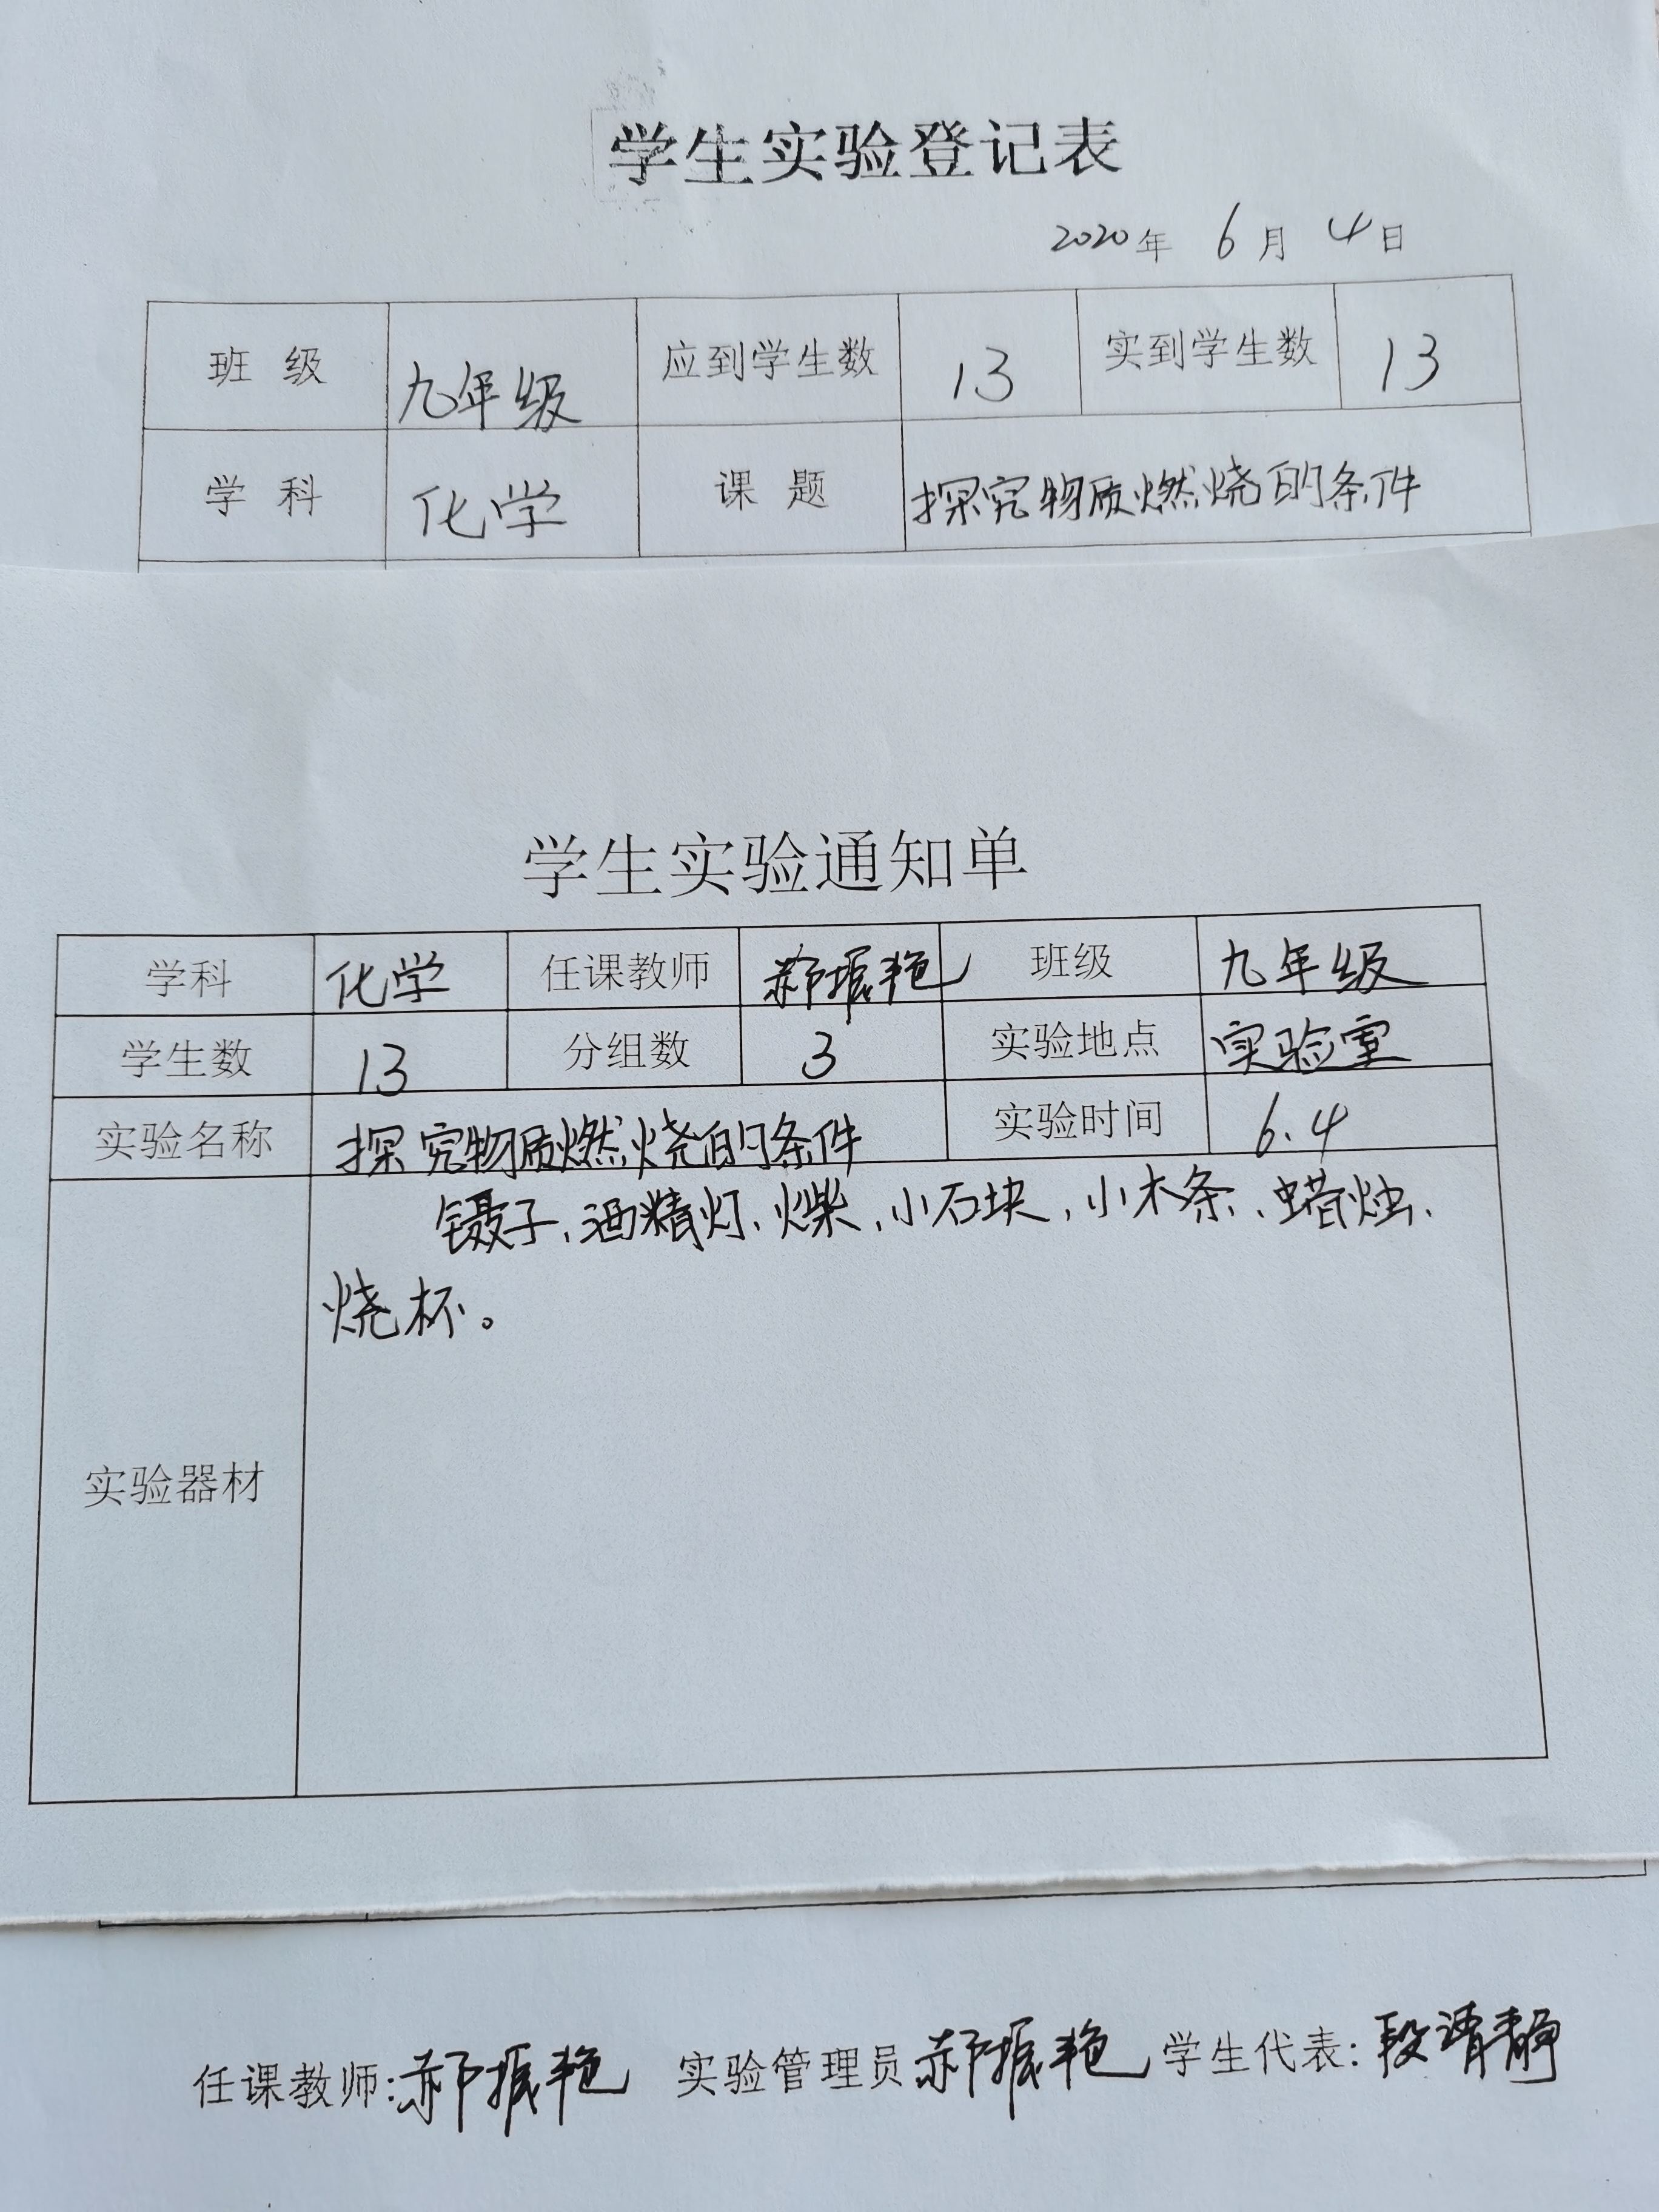 学生实验登记表
2020年 6月 4日
班 级 九年级 应到学生数 13 实到学生数 13
学 科 化学 课 题 探究物质燃烧的条件
学生实验通知单
学科 化学 任课教师 郝振艳 班级 九年级
学生数 13 分组数 3 实验地点 实验室
实验名称 探究物质燃烧的条件 实验时间 6.4
镊子、酒精灯、火柴、小石块、小木条、蜡烛、
烧杯。
实验器材
任课教师:郝振艳 实验管理员 郝振艳 学生代表:段清静